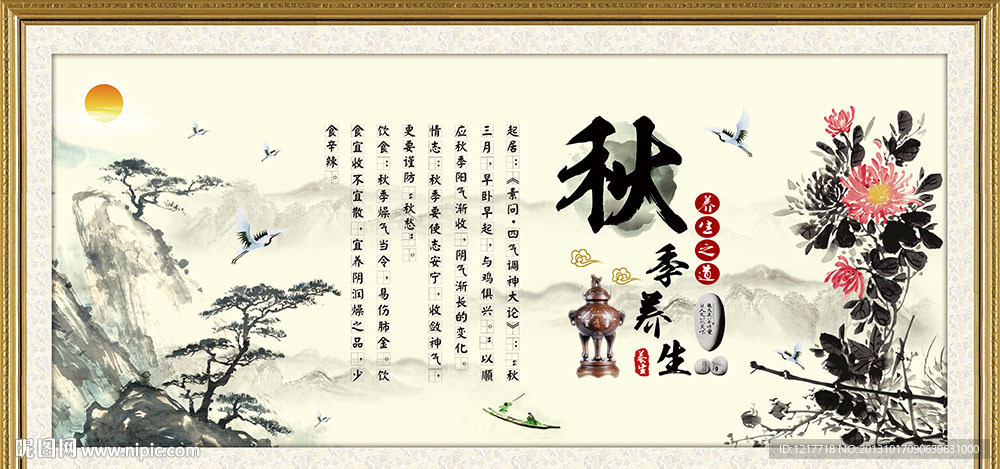 秋
季养生
养生之道
养生
起居:《素问·四气调神大论》:"秋
三月,早卧早起,与鸡俱兴。"以顺
应秋季阳气渐收,阴气渐长的变化。
情志:秋季要使志安宁,收敛神气,
更要谨防"秋愁"。
饮食:秋季燥气当令,易伤肺金。饮
食宜收不宜散,宜养阴润燥之品,少
食辛辣。
昵图网 www.nipic.com
ID:1217718 NO:20131017090639631000